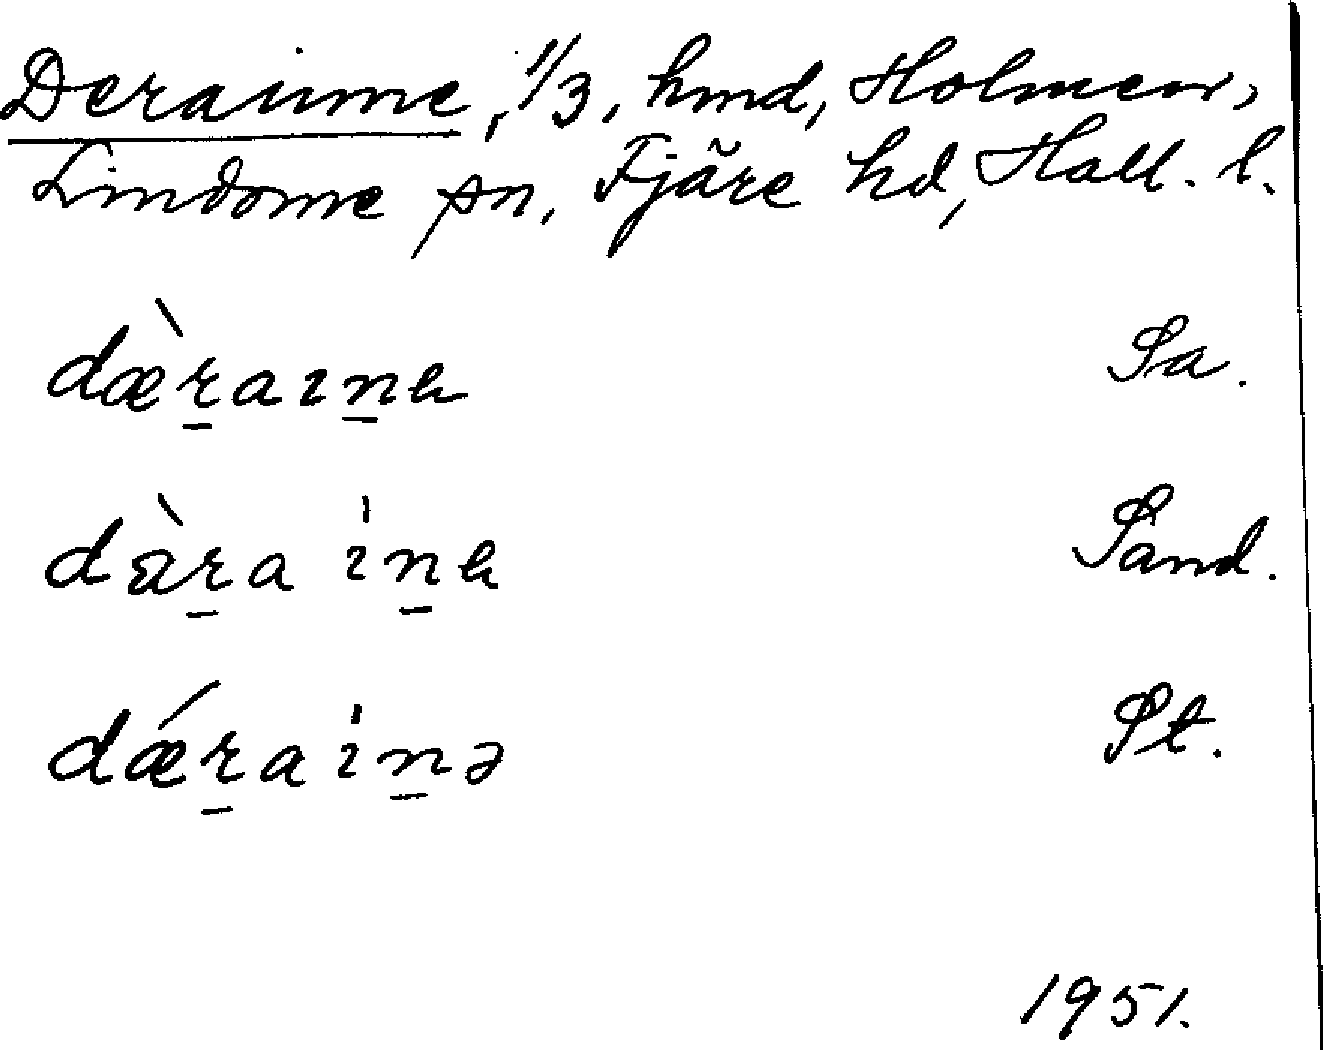 Derainne, 1/3, hmd, Holmen,
Lindome sn, Fjäre hd, Hall. l.
dæ̀r̲aın̲ɐ Sa.
dàr̲a ı̍n̲ɐ Sand.
dǽr̲a ı̍n̲ə St.
1951.